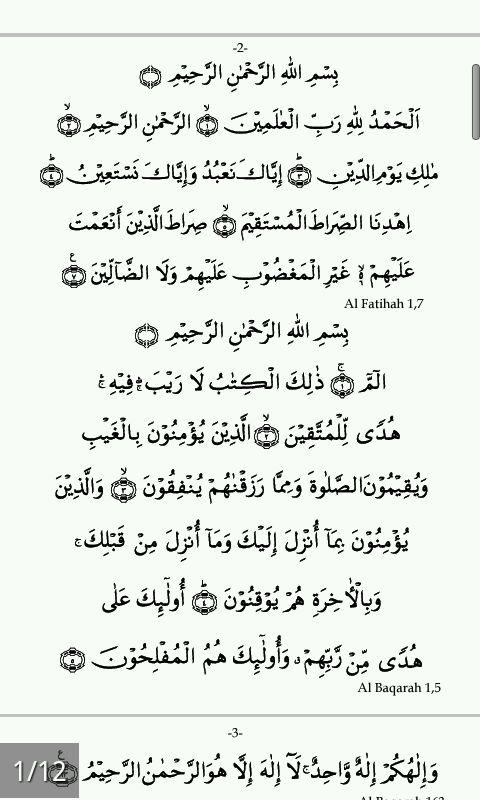 -2-
بِسْمِ اللهِ الرَّحْمٰنِ الرَّحِيْمِ ۝
اَلْحَمْدُ لِلّٰهِ رَبِّ الْعٰلَمِيْنَ ۙ﴿١﴾ الرَّحْمٰنِ الرَّحِيْمِ ۙ﴿٢﴾
مٰلِكِ يَوْمِ الدِّيْنِ ۗ﴿٣﴾ إِيَّاكَ نَعْبُدُ وَإِيَّاكَ نَسْتَعِيْنُ ۗ﴿٤﴾
اِهْدِنَا الصِّرَاطَ الْمُسْتَقِيْمَ ۙ﴿٥﴾ صِرَاطَ الَّذِيْنَ أَنْعَمْتَ
عَلَيْهِمْ ۙ۬ غَيْرِ الْمَغْضُوْبِ عَلَيْهِمْ وَلَا الضَّآلِّيْنَ ﴿٧﴾ ع
Al Fatihah 1,7
بِسْمِ اللهِ الرَّحْمٰنِ الرَّحِيْمِ ۝
الٓمّٓ ۚ﴿١﴾ ذٰلِكَ الْكِتٰبُ لَا رَيْبَ ۛ فِيْهِ ۛ
هُدًى لِّلْمُتَّقِيْنَ ۙ﴿٢﴾ الَّذِيْنَ يُؤْمِنُوْنَ بِالْغَيْبِ
وَيُقِيْمُوْنَ الصَّلٰوةَ وَمِمَّا رَزَقْنٰهُمْ يُنْفِقُوْنَ ۙ﴿٣﴾ وَالَّذِيْنَ
يُؤْمِنُوْنَ بِمَآ أُنْزِلَ إِلَيْكَ وَمَآ أُنْزِلَ مِنْ قَبْلِكَ ۚ
وَبِالْاٰخِرَةِ هُمْ يُوْقِنُوْنَ ۗ﴿٤﴾ أُولٰٓئِكَ عَلٰى
هُدًى مِّنْ رَّبِّهِمْ ۙ وَأُولٰٓئِكَ هُمُ الْمُفْلِحُوْنَ ﴿٥﴾
Al Baqarah 1,5
-3-
وَإِلٰهُكُمْ إِلٰهٌ وَّاحِدٌ ۚ لَآ إِلٰهَ إِلَّا هُوَ الرَّحْمٰنُ الرَّحِيْمُ ع
1/12
Al Baqarah 163